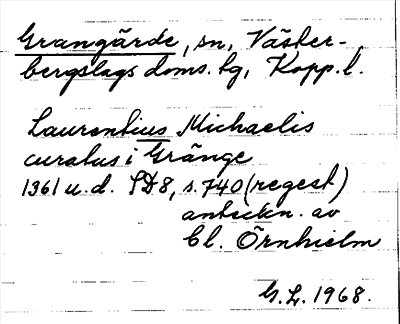 Grangärde, sn, Väster-
bergslags doms. tg, Kopp. l.
Laurentius Michaelis
curatus i Gränge
1361 u. d. SD8, s. 740 (regest)
anteckn. av
Cl. Örnhielm
G. L. 1968.